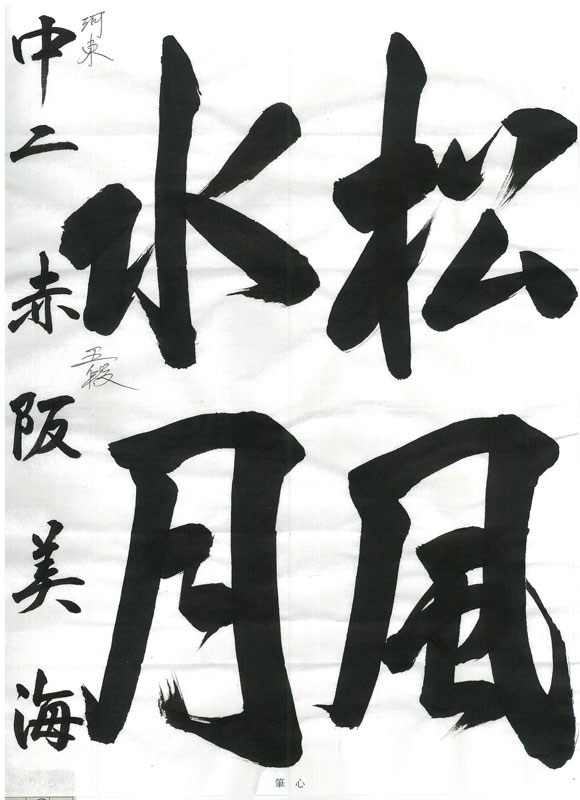 松風
水月
河東
中二 赤阪美海
五段
筆心